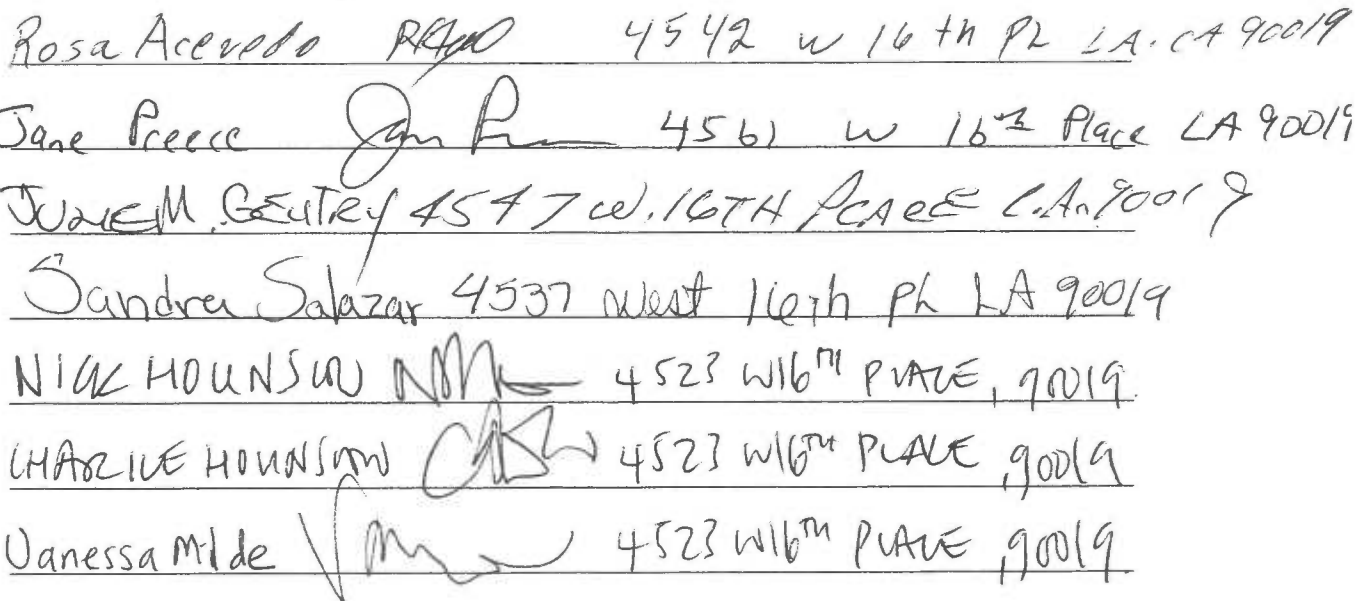 Rosa Acevedo 4542 W 16th PL LA. CA 90019
Jane Preece 4561 W 16th Place LA 90019
JUNE M. GENTRY 4547 W. 16TH PLACE L.A. 90019
Sandra Salazar 4537 West 16th PL LA 90019
NICK HOUNSLOW 4523 W16TH PLACE, 90019.
CHARLIE HOUNSLOW 4523 W16TH PLACE, 90019
Vanessa Milde 4523 W16TH PLACE, 90019.